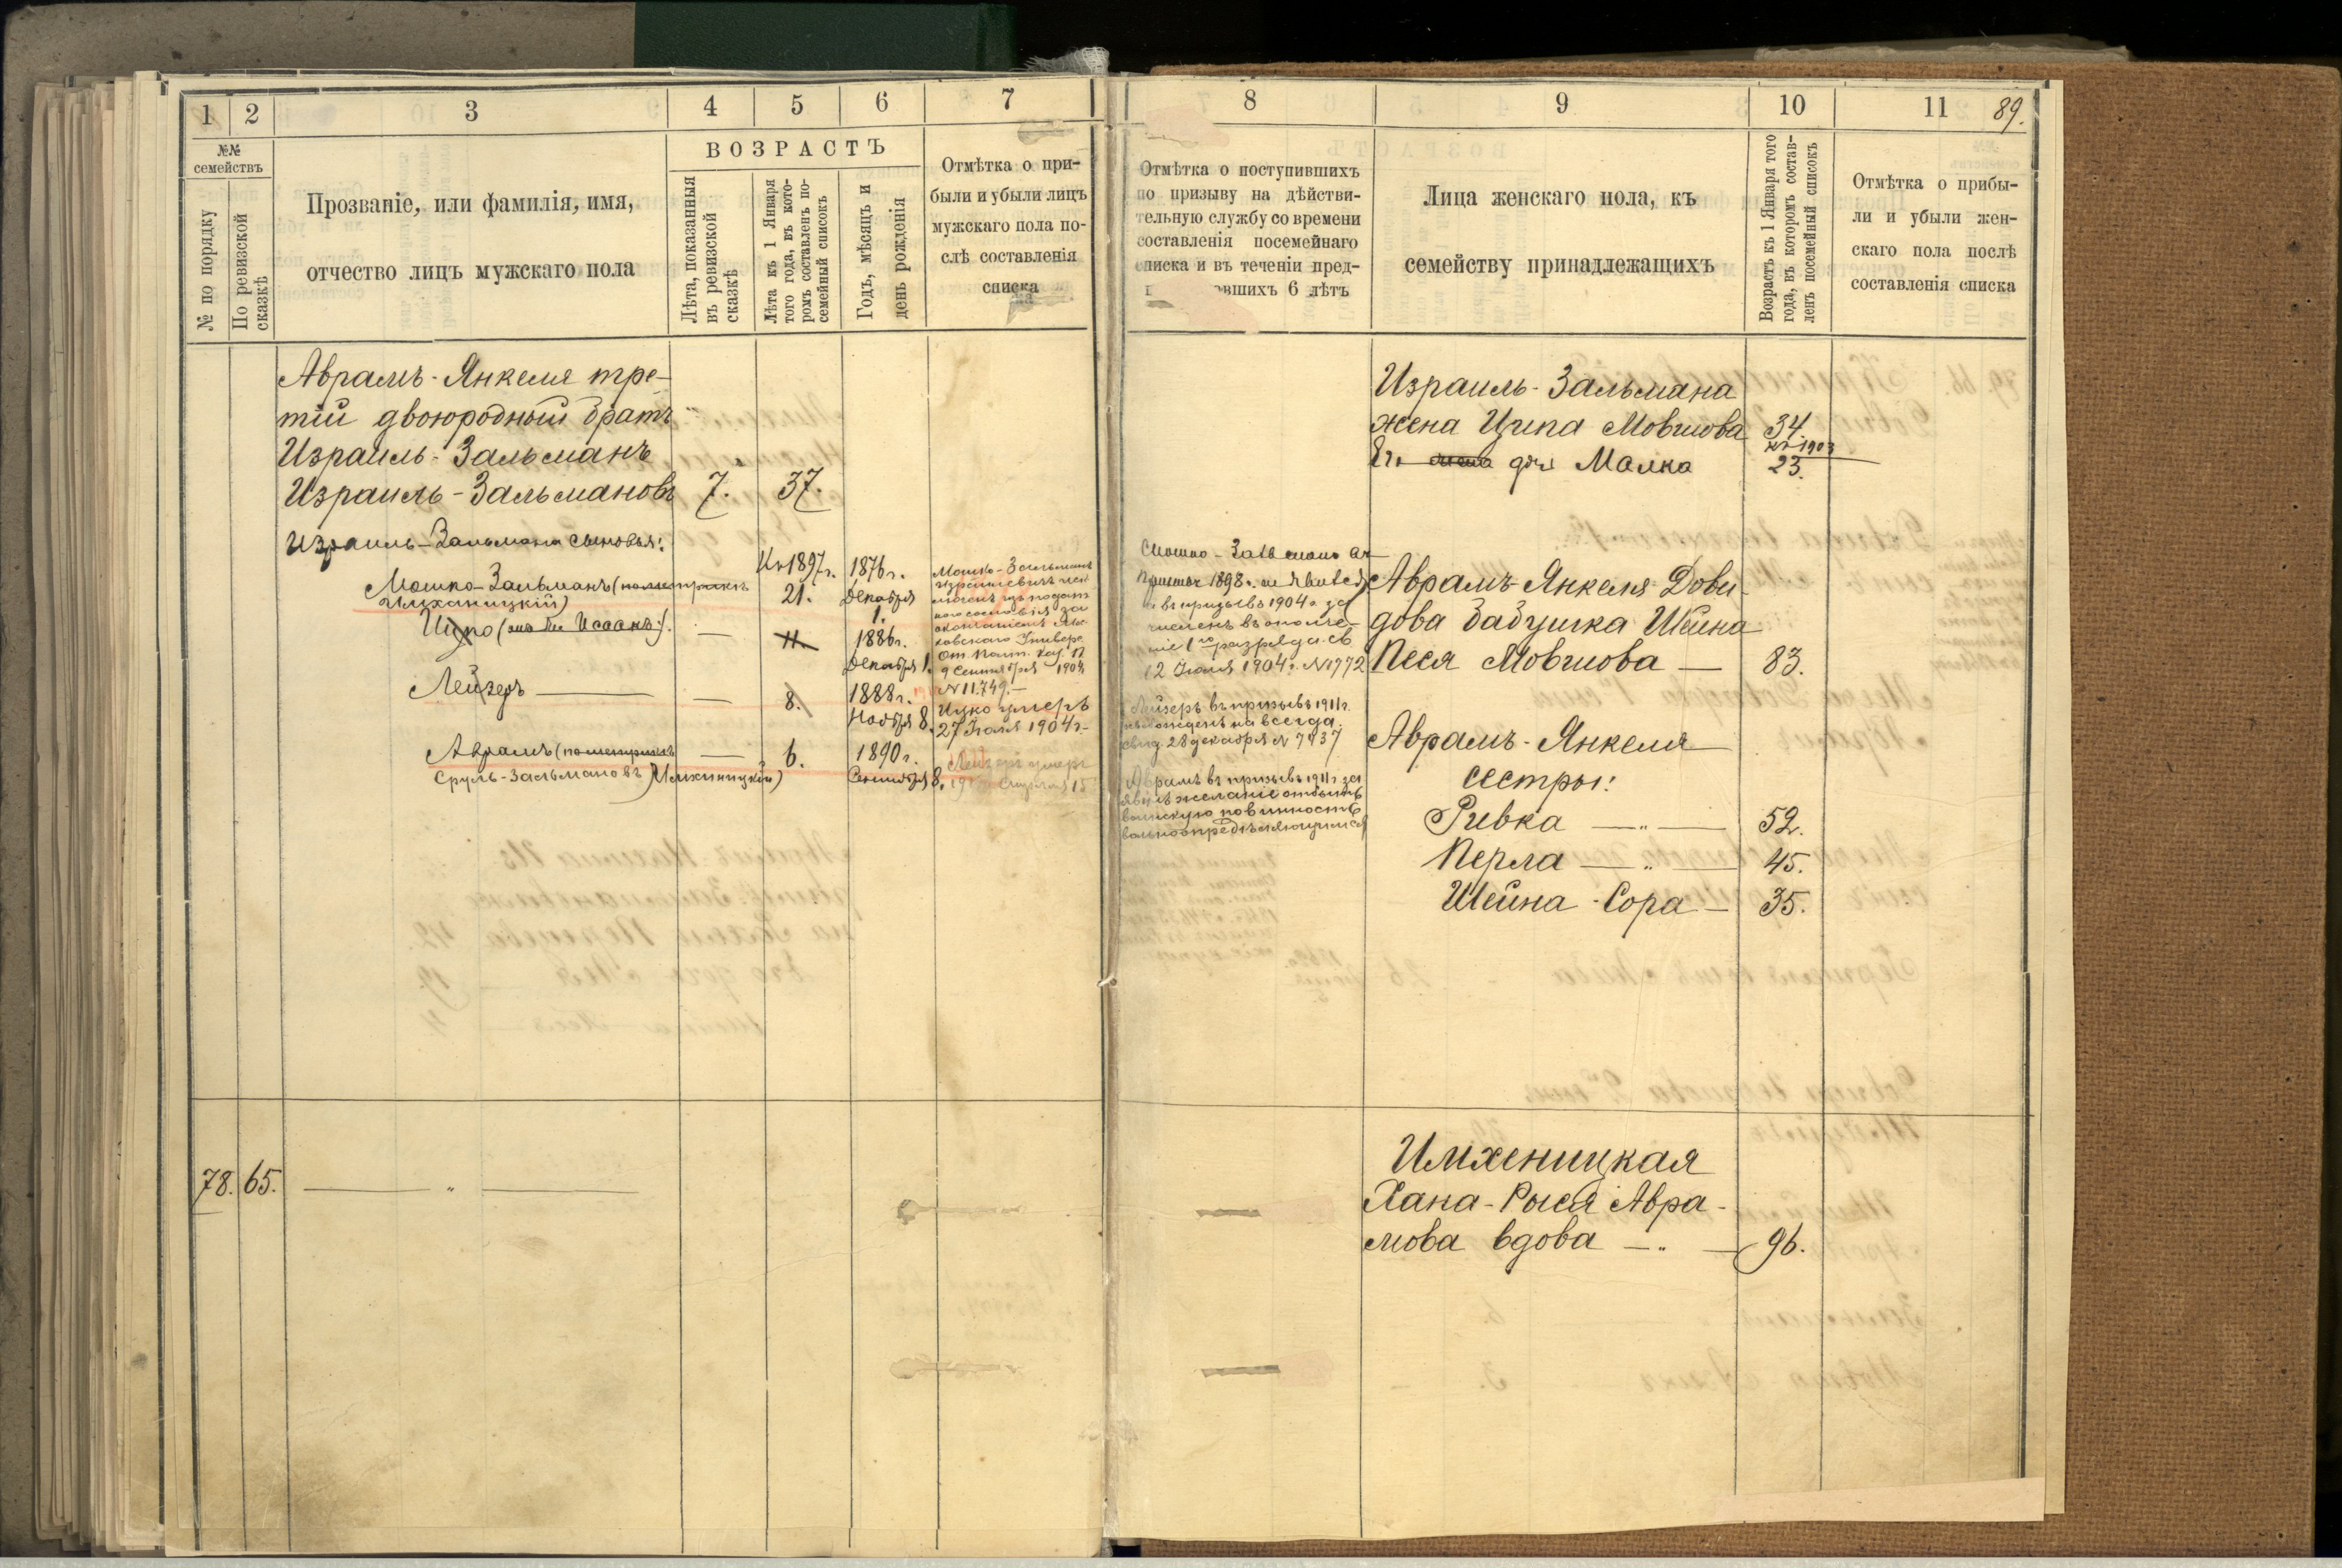 1
2
3
4
5
6
7
№№
семействъ
№ по порядку
По ревизской
сказкѣ
Прозваніе, или фамилія, имя,
отчество лицъ мужскаго пола
ВОЗРАСТЪ
Лѣта, показанныя
въ ревизской
сказкѣ
Лѣта къ 1 Января
того года, въ кото-
ромъ составленъ по-
семейный списокъ
Годъ, мѣсяцъ и
день рожденія
Отмѣтка о при-
были и убыли лицъ
мужскаго пола по-
слѣ составленія
списка
Аврамъ-Янкеля тре-
тій двоюродный братъ
Израиль-Зальманъ
Израиль-Зальмановъ 7. 37.
Израиль-Зальмана сыновья:
Мошко-Зальманъ (по метрикѣ
Имханицкій)
Къ 1897 г.
21.
1876 г.
Декабря
1.
Мошко-Зальманъ
9 Сентября 1904
N 11.749.—
Ицко (онъ же Исаакъ). — 11.
1886 г.
Декабря 1.
Ицко умеръ
27 Іюля 1904 г.
Лейзеръ — — 8.
1888 г.
Ноября 8.
Лейзеръ умеръ
Апрѣля 15
Аврамъ (по метрикѣ — 6.
Сруль-Зальмановъ Имхиницкій)
1890 г.
Сентября 8.
78. 65. — " —
8
9
10
11
89.
Отмѣтка о поступившихъ
по призыву на дѣйстви-
тельную службу со времени
составленія посемейнаго
списка и въ теченіи пред-
вшихъ 6 лѣтъ
Лица женскаго пола, къ
семейству принадлежащихъ
Возрастъ къ 1 Января того
года, въ которомъ состав-
ленъ посемейный списокъ
Отмѣтка о прибы-
ли и убыли жен-
скаго пола послѣ
составленія списка
Израиль-Зальмана
жена Ципа Мовшова 34
къ 1903
Его дочь Малка 23.
Мошко-Зальманъ въ
1898 г. не явился
и въ призывъ 1904 г. за
численъ въ ополче-
ніе 1го разряда св
12 Іюля 1904 г. N 1772
Аврамъ-Янкеля Дови-
дова бабушка Шейна
Песя Мовшова — 83.
Лейзеръ въ призывъ 1911 г.
освобожденъ на всегда.
свид. 28 декабря N 7937
Аврамъ въ призывъ 1911 г. за
явилъ желаніе отбыть
воинскую повинность
вольноопредѣляющимся
Аврамъ-Янкеля
сестры:
Ривка — " — 52.
Перла — " — 45.
Шейна-Сора — 35.
Имхеницкая
Хана-Рыся Авра-
мова вдова — " — 96.